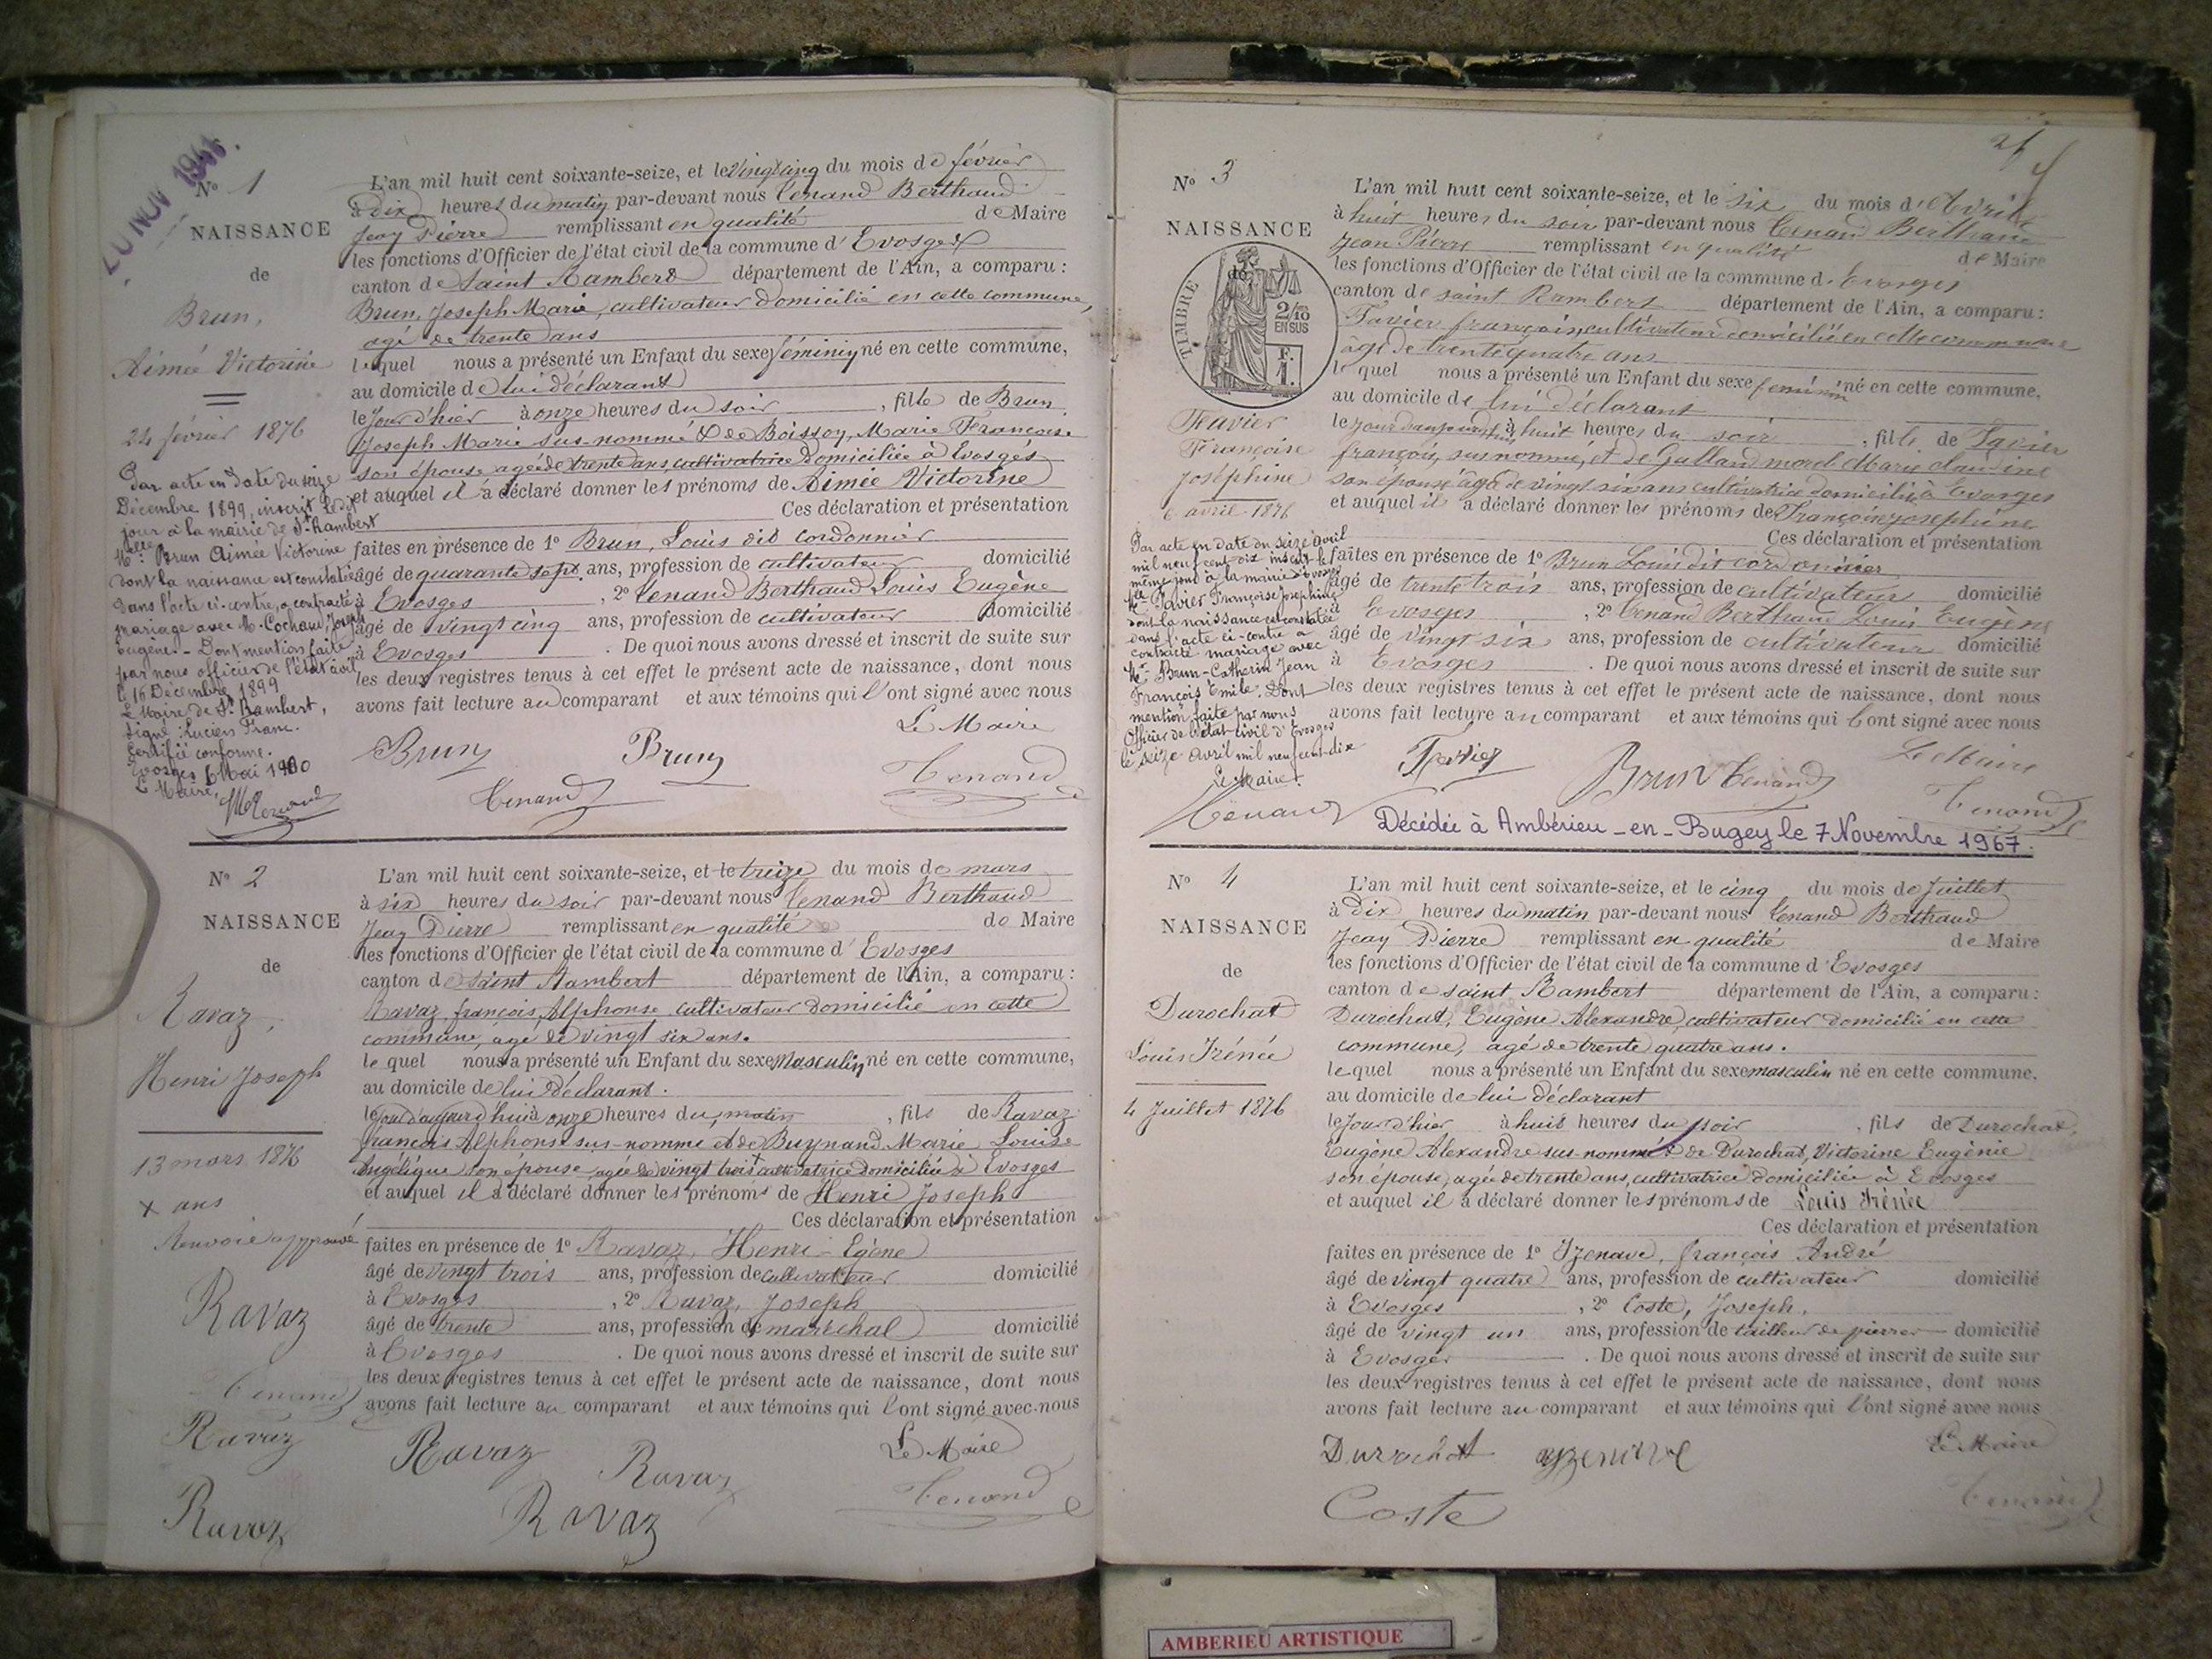 20 NOV 1946.
N° 1
NAISSANCE
de
Brun,
Aimée Victorine
24 février 1876
Par acte en date du seize
Décembre 1899, inscrit ledit
jour à la mairie de St Rambert
Melle Brun Aimée Victorine
dont la naissance est constatée
dans l'acte ci-contre, a contracté
mariage avec M. Cochaud, Joseph
Eugène. Dont mention faite
par nous officier de l'état civil
le 16 Décembre 1899
Le Maire de St Rambert,
signé: Lucien Franc.
Certifié conforme.
Evosges 6 Mai 1900
Le Maire,
Tenand
L'an mil huit cent soixante-seize, et le vingt cinq du mois de février
à dix heures du matin par-devant nous Tenand Berthaud
Jean Pierre remplissant en qualité de Maire
les fonctions d'Officier de l'état civil de la commune d'Evosges
canton de Saint Rambert département de l'Ain, a comparu:
Brun, Joseph Marie, cultivateur domicilié en cette commune,
agé de trente ans
lequel nous a présenté un Enfant du sexe féminin né en cette commune,
au domicile de lui déclarant
le Jour d'hier à onze heures du soir, fille de Brun
Joseph Marie sus-nommé & de Boisson, Marie Francoise
son épouse agée de trente ans, cultivatrice domiciliée à Evosges
et auquel il a déclaré donner les prénoms de Aimée Victorine
Ces déclaration et présentation
faites en présence de 1° Brun, Louis dit cordonnier
âgé de quarante sept ans, profession de cultivateur domicilié
à Evosges, 2° Tenand Berthaud Louis Eugène
âgé de vingt cinq ans, profession de cultivateur domicilié
à Evosges. De quoi nous avons dressé et inscrit de suite sur
les deux registres tenus à cet effet le présent acte de naissance, dont nous
avons fait lecture au comparant et aux témoins qui l'ont signé avec nous
Le Maire
Brun Brun
Tenand Tenand
N° 2
NAISSANCE
de
Ravaz,
Henri Joseph
13 mars 1876
x ans
Renvoie approuvé
Ravaz
Tenand
Ravaz
Ravaz
L'an mil huit cent soixante-seize, et le treize du mois de mars
à six heures du soir par-devant nous Tenand Berthaud
Jean Pierre remplissant en qualité de Maire
les fonctions d'Officier de l'état civil de la commune d'Evosges
canton de saint Rambert département de l'Ain, a comparu:
Ravaz, françois, Alphonse, cultivateur domicilié en cette
commune, agé de vingt six ans.
lequel nous a présenté un Enfant du sexe masculin né en cette commune,
au domicile de lui déclarant.
le jour d'aujourd'hui à onze heures du matin, fils de Ravaz
francois Alphonse sus-nommé et de Buynand Marie Louise
Angélique son épouse agée de vingt trois x cultivatrice domiciliée à Evosges
et auquel il a déclaré donner les prénoms de Henri Joseph
Ces déclaration et présentation
faites en présence de 1° Ravaz, Henri-Egène
âgé de vingt trois ans, profession de cultivateur domicilié
à Evosges, 2° Ravaz, Joseph
âgé de trente ans, profession de maréchal domicilié
à Evosges. De quoi nous avons dressé et inscrit de suite sur
les deux registres tenus à cet effet le présent acte de naissance, dont nous
avons fait lecture au comparant et aux témoins qui l'ont signé avec nous
Le Maire
Ravaz Ravaz
Ravaz Tenand
N° 3
NAISSANCE
de
TIMBRE 2/10 EN SUS F. 1.
Favier
Françoise
Joséphine
6 avril 1876
Par acte en date du seize avril
mil neuf cent dix inscrit le
même jour à la mairie d'Evosges
Melle Favier Françoise Josephine
dont la naissance est constatée
dans l'acte ci-contre a
contracté mariage avec
Mr Brun-Catherin Jean
François Emile. Dont
mention faite par nous
Officier de l'état-civil d'Evosges
le seize avril mil neuf cent-dix
Le Maire.
Tenand
L'an mil huit cent soixante-seize, et le six du mois d'Avril
à huit heures du soir, par-devant nous Tenand Berthaud
Jean Pierre remplissant en qualité de Maire
les fonctions d'Officier de l'état civil de la commune d'Evosges
canton de saint Rambert département de l'Ain, a comparu:
Favier françois, cultivateur domicilié en cette commune
âgé de trente quatre ans
lequel nous a présenté un Enfant du sexe feminin né en cette commune,
au domicile de lui déclarant
le jour d'aujourd'hui à huit heures du soir, fille de Favier
françois, sus nommé, et de Galland morel Marie claudine
son épouse âgé de vingt six ans cultivatrice domicilié à Evosges
et auquel il a déclaré donner les prénoms de Françoise josephine
Ces déclaration et présentation
faites en présence de 1° Brun Louis dit cordonnier
âgé de trente trois ans, profession de cultivateur domicilié
à Evosges, 2° Tenand Berthaud Louis Eugène
âgé de vingt six ans, profession de cultivateur domicilié
à Evosges. De quoi nous avons dressé et inscrit de suite sur
les deux registres tenus à cet effet le présent acte de naissance, dont nous
avons fait lecture au comparant et aux témoins qui l'ont signé avec nous
Le Maire
Favier Brun Tenand Tenand
Décédée à Ambérieu-en-Bugey le 7 Novembre 1967.
N° 4
NAISSANCE
de
Durochat
Louis Irénée
4 Juillet 1876
L'an mil huit cent soixante-seize, et le cinq du mois de Juillet
à dix heures du matin par-devant nous Tenand Berthaud
Jean Pierre remplissant en qualité de Maire
les fonctions d'Officier de l'état civil de la commune d'Evosges
canton de saint Rambert département de l'Ain, a comparu:
Durochat, Eugène Alexandre, cultivateur domicilié en cette
commune, agé de trente quatre ans.
lequel nous a présenté un Enfant du sexe masculin né en cette commune,
au domicile de lui déclarant
le Jour d'hier à huit heures du soir, fils de Durochat,
Eugène Alexandre sus-nommé & de Durochat, Victorine Eugénie
son épouse, agée de trente ans, cultivatrice domiciliée à Evosges
et auquel il a déclaré donner les prénoms de Louis Irénée
Ces déclaration et présentation
faites en présence de 1° Izenave, françois André
âgé de vingt quatre ans, profession de cultivateur domicilié
à Evosges, 2° Coste, Joseph,
âgé de vingt un ans, profession de tailleur de pierres domicilié
à Evosges. De quoi nous avons dressé et inscrit de suite sur
les deux registres tenus à cet effet le présent acte de naissance, dont nous
avons fait lecture au comparant et aux témoins qui l'ont signé avec nous
Le Maire
Durochat
Coste Tenand
AMBERIEU ARTISTIQUE